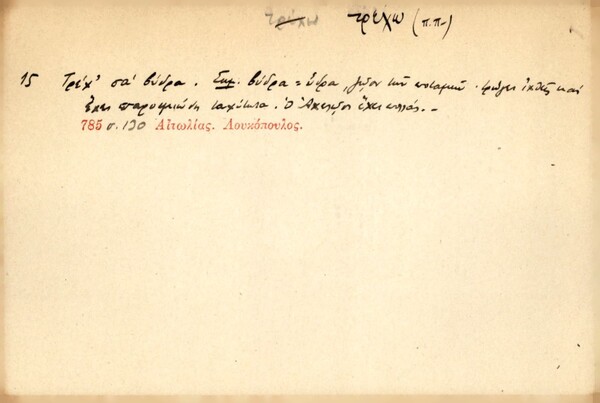 τρέχω τρέχω (π.π.)
15 Τρέχ' σα' βύδρα. Σημ. βύδρα = ύδρα, ζῷον τῶν ποταμῶν. τρώγει ἰχθῦς καὶ
ἔχει παροιμιώδη ταχύτητα. Ὁ Ἀχελῷος ἔχει πολλάς. –
785 σ. 130 Αἰτωλίας. Λουκόπουλος.